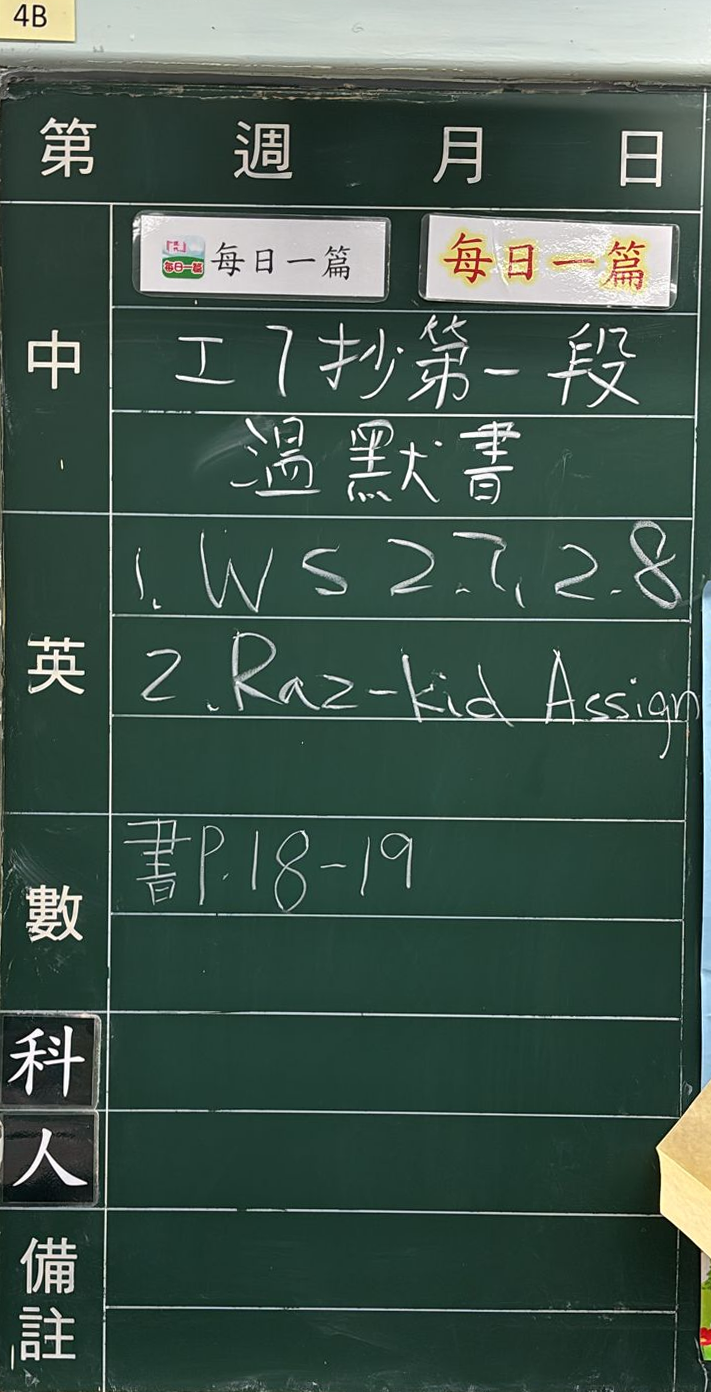 4B
第 週 月 日
中
每日一篇 每日一篇
工7抄第一段
溫默書
英
1. WS 2.7, 2.8
2. Raz-kid Assign
數
書P.18-19
科
人
備註